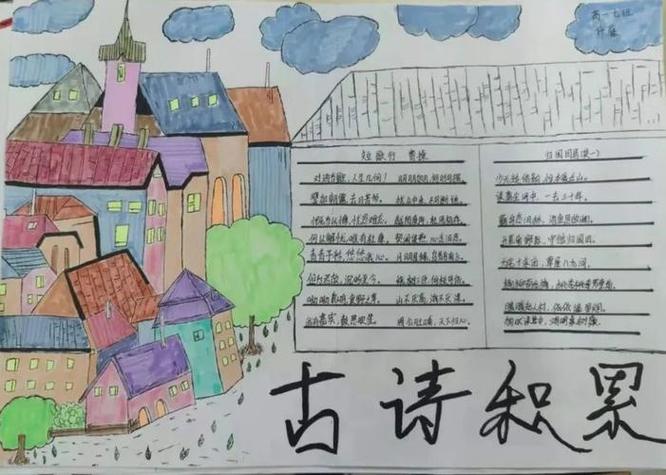 高一七班
短歌行 曹操
对酒当歌，人生几何！ 明明如月，何时可掇。
譬如朝露，去日苦多。 忧从中来，不可断绝。
慨当以慷，忧思难忘。 越陌度阡，枉用相存。
何以解忧，唯有杜康。 契阔谈䜩，心念旧恩。
青青子衿，悠悠我心。 月明星稀，乌鹊南飞。
但为君故，沉吟至今。 绕树三匝，何枝可依。
呦呦鹿鸣，食野之苹。 山不厌高，海不厌深。
我有嘉宾，鼓瑟吹笙。 周公吐哺，天下归心。
归园田居(其一)
少无适俗韵，性本爱丘山。
误落尘网中，一去三十年。
羁鸟恋旧林，池鱼思故渊。
开荒南野际，守拙归园田。
方宅十余亩，草屋八九间。
榆柳荫后檐，桃李罗堂前。
暧暧远人村，依依墟里烟。
狗吠深巷中，鸡鸣桑树颠。
古诗积累